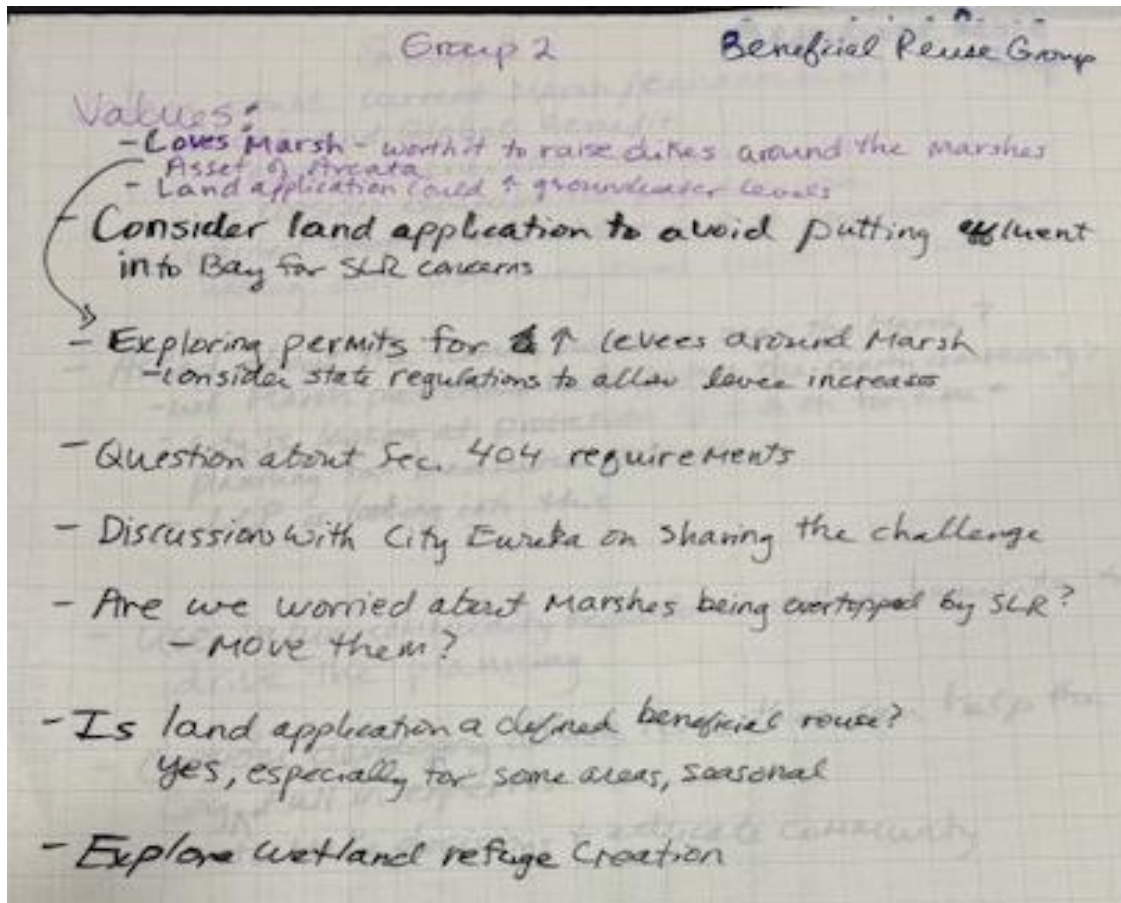 Group 2
Beneficial Reuse Group
Values:
- Loves Marsh - worth it to raise dikes around the marshes
Asset of Arcata
- Land application could ↑ groundwater levels
- Consider land application to avoid putting effluent
into Bay for SLR concerns
- Exploring permits for ↑ levees around Marsh
- consider state regulations to allow levee increases
- Question about Sec. 404 requirements
- Discussion with City Eureka on sharing the challenge
- Are we worried about Marshes being overtopped by SLR?
- Move them?
- Is land application a defined beneficial reuse?
yes, especially for some areas, seasonal
- Explore wetland refuge Creation